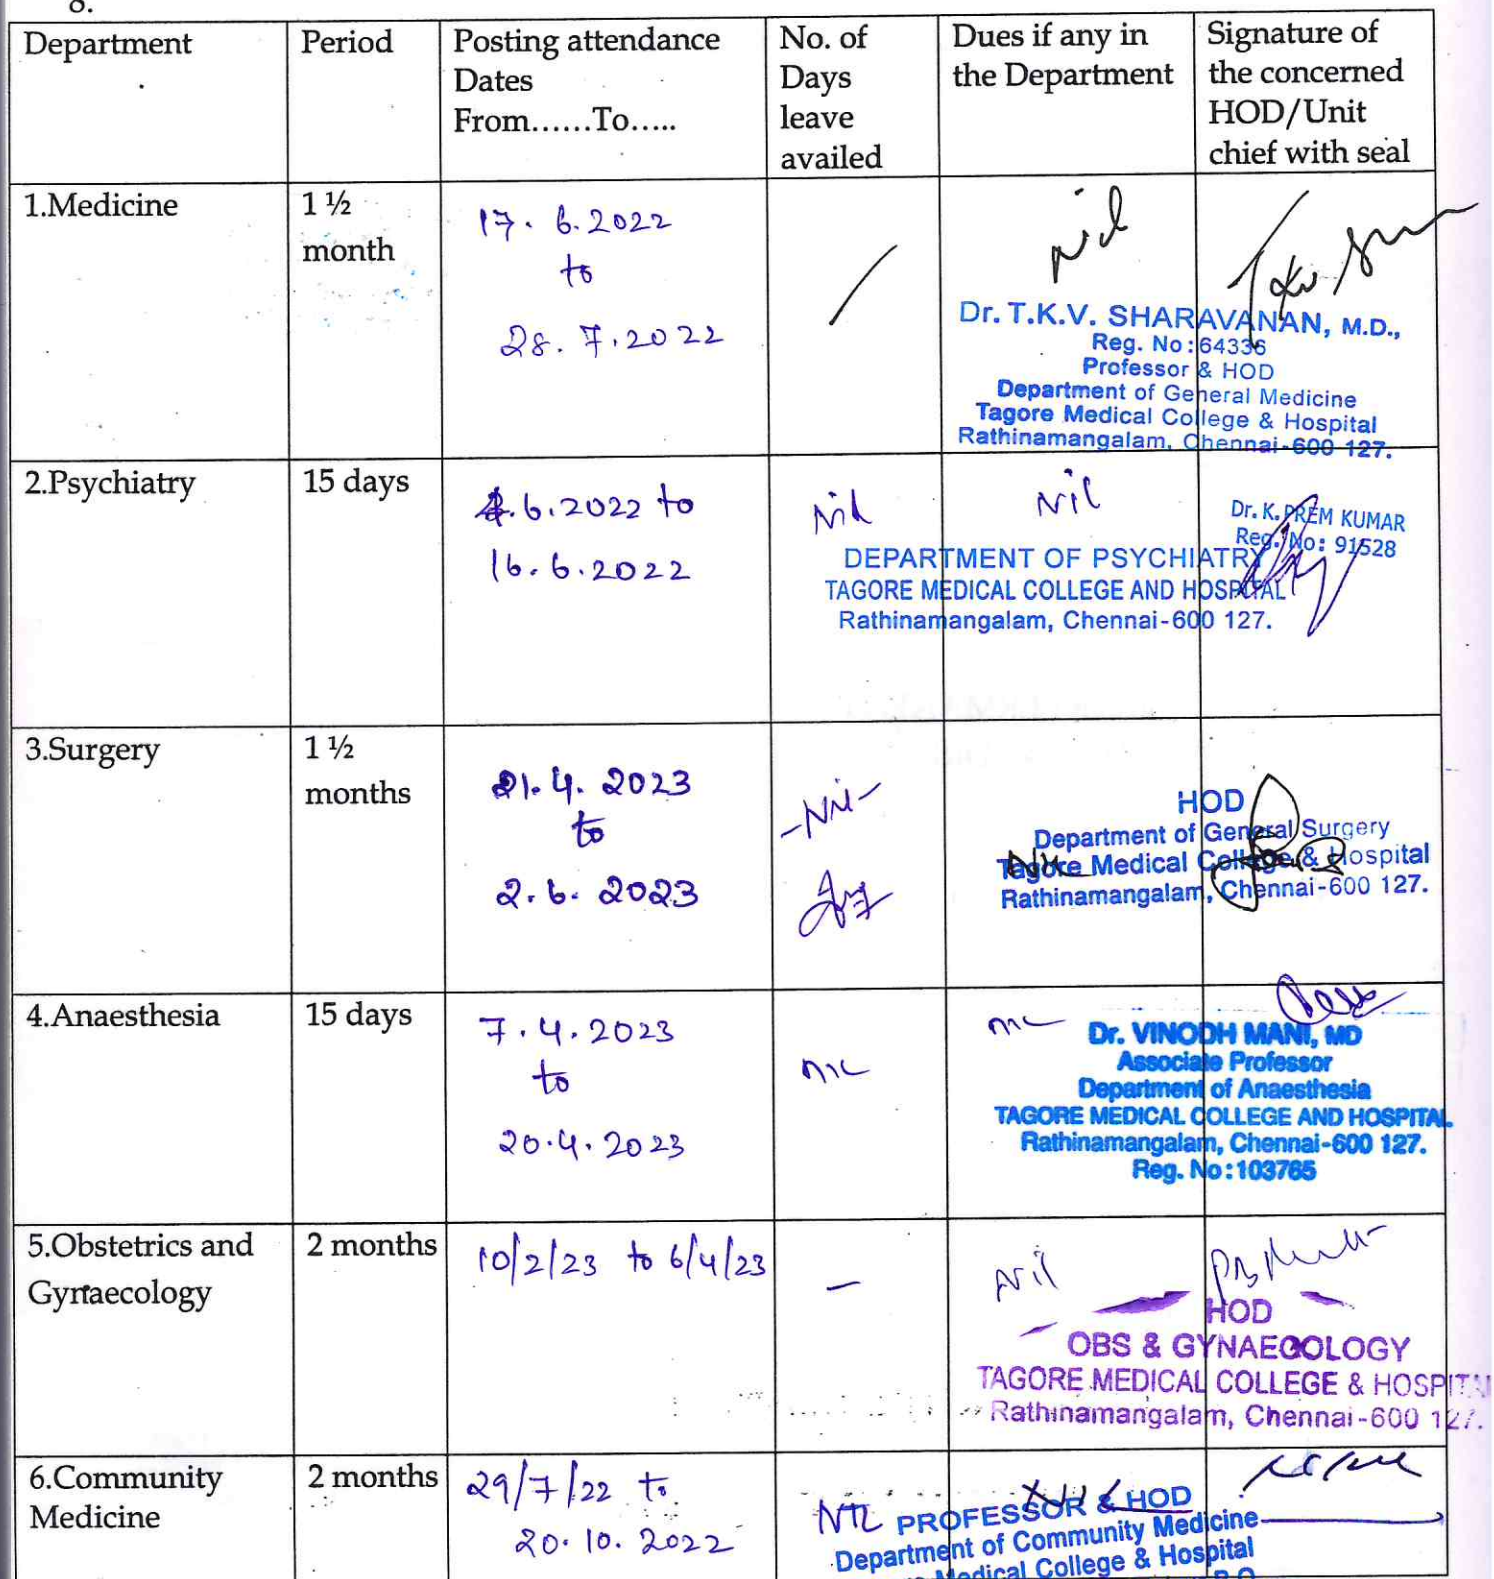 8.
Department
Period
Posting attendance
Dates
From......To.....
No. of
Days
leave
availed
Dues if any in
the Department
Signature of
the concerned
HOD/Unit
chief with seal
1.Medicine
1 ½
month
17. 6.2022
to
28. 7.2022
Nil
Dr. T.K.V. SHARAVANAN, M.D.,
Reg. No:64336
Professor & HOD
Department of General Medicine
Tagore Medical College & Hospital
Rathinamangalam, Chennai-600 127.
2.Psychiatry
15 days
.6.2022 to
16.6.2022
Nil
Nil
Dr. K. PREM KUMAR
Reg. No: 91528
DEPARTMENT OF PSYCHIATRY
TAGORE MEDICAL COLLEGE AND HOSPITAL
Rathinamangalam, Chennai-600 127.
3.Surgery
1 ½
months
21.4. 2023
to
2.6. 2023
-Nil-
HOD
Department of General Surgery
Tagore Medical College & Hospital
Rathinamangalam, Chennai-600 127.
4.Anaesthesia
15 days
7.4.2023
to
20.4.2023
NIL
NIL
Dr. VINODH MANI, MD
Associate Professor
Department of Anaesthesia
TAGORE MEDICAL COLLEGE AND HOSPITAL
Rathinamangalam, Chennai-600 127.
Reg. No:103765
5.Obstetrics and
Gynaecology
2 months
10/2/23 to 6/4/23
–
Nil
HOD
OBS & GYNAECOLOGY
TAGORE MEDICAL COLLEGE & HOSPITAL
Rathinamangalam, Chennai-600 127.
6.Community
Medicine
2 months
29/7/22 to
20.10.2022
NIL
NIL
PROFESSOR & HOD
Department of Community Medicine
Medical College & Hospital